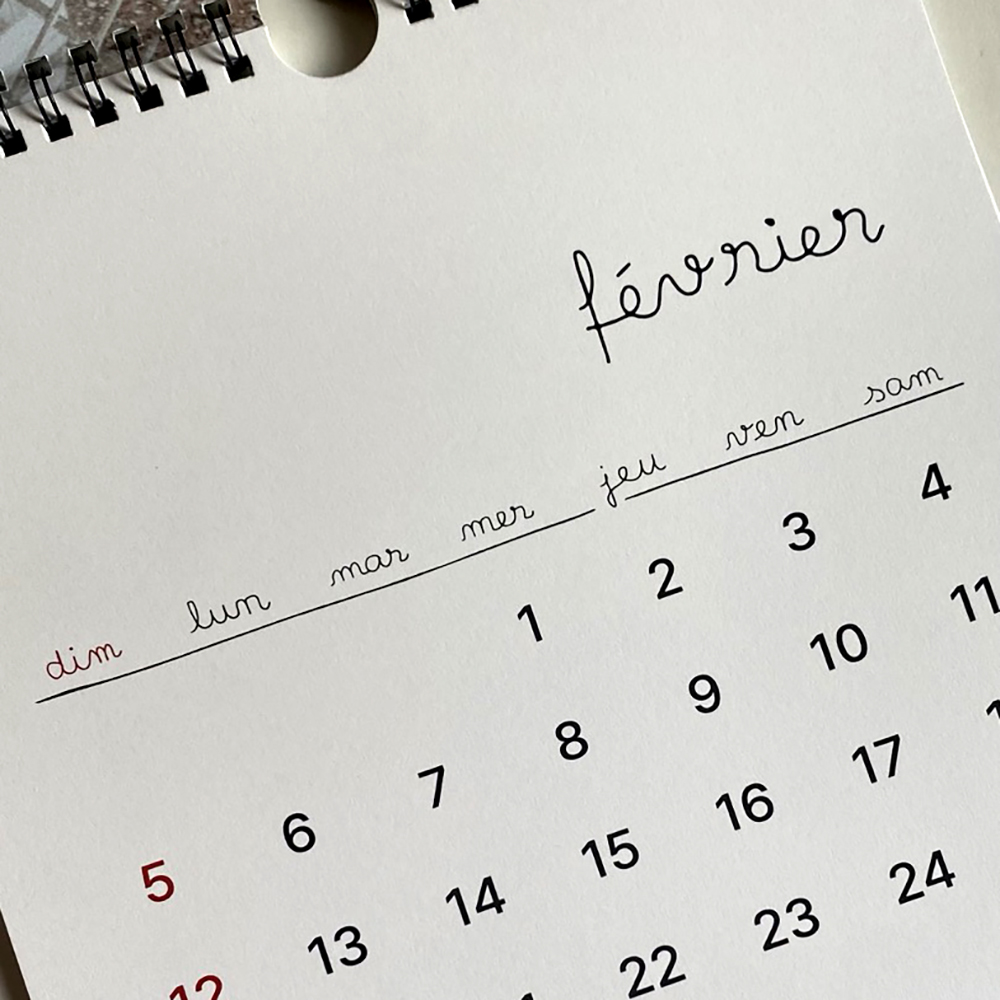 février
dim lun mar mer jeu ven sam
1 2 3 4
5 6 7 8 9 10 11
12 13 14 15 16 17
22 23 24